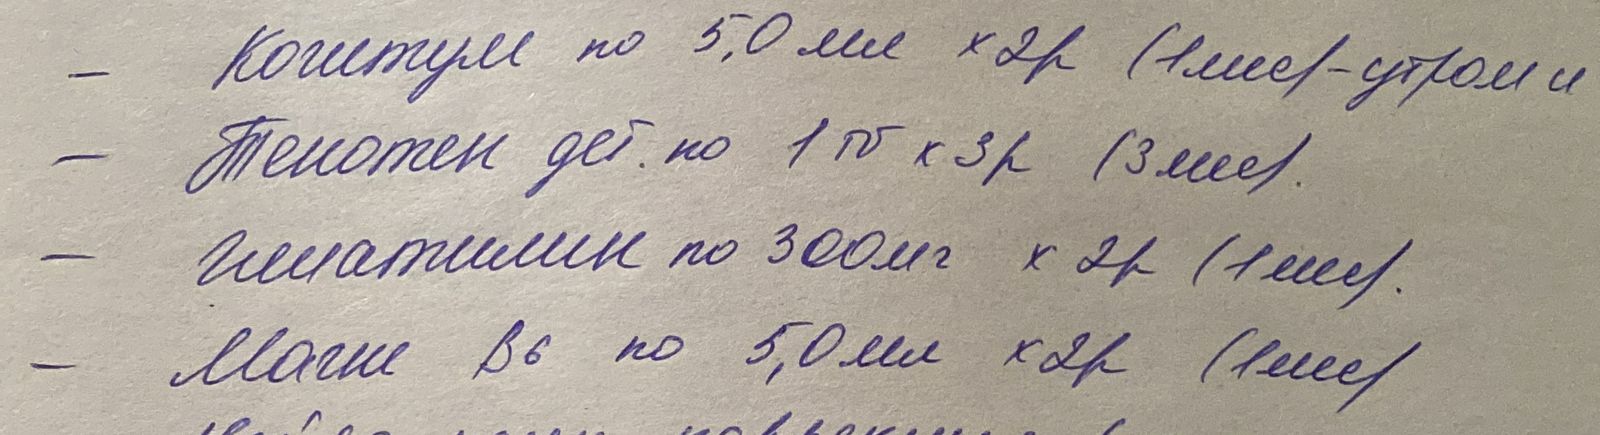 - Когитум по 5,0 мл х 2р (1 мес) - утром и
- Тенотен дет. по 1 тб х 3р (3 мес).
- Глиатилин по 300мг х 2р (1 мес).
- Магне В6 по 5,0 мл х 2р (1 мес)